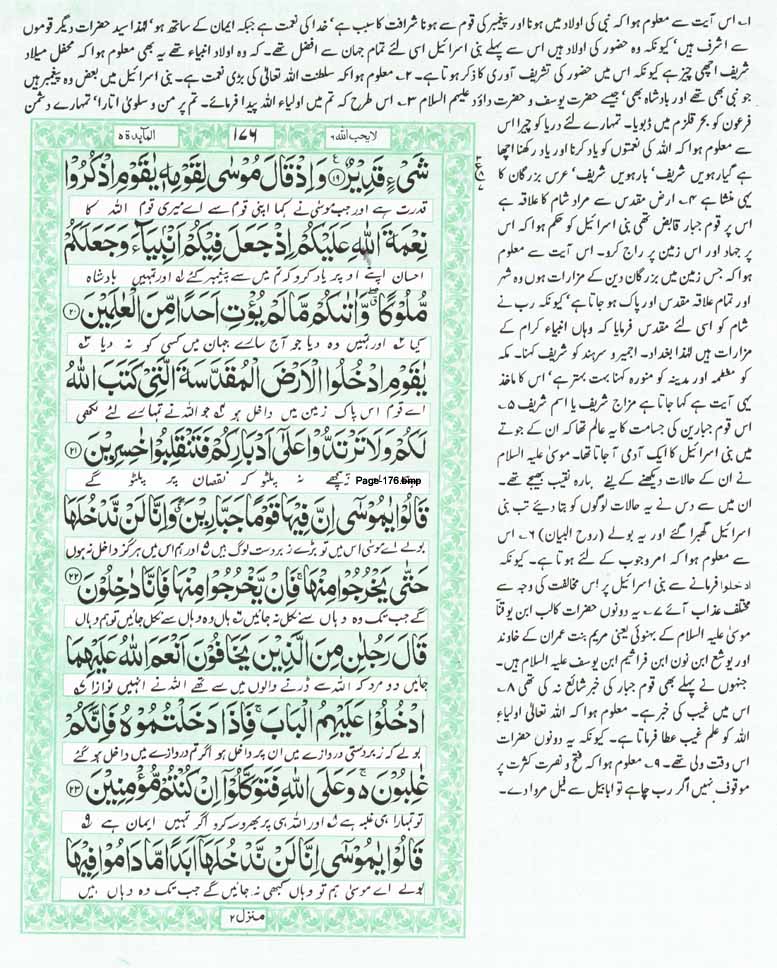 ۱۔ اس آیت سے معلوم ہوا کہ نبی کی اولاد میں ہونا اور پیغمبر کی قوم سے ہونا شرافت کا سبب ہے‘ خدا کی نعمت ہے جبکہ ایمان کے ساتھ ہو‘ لہٰذا سید حضرات دیگر قوموں
سے اشرف ہیں‘ کیونکہ وہ حضور کی اولاد ہیں اس سے پہلے بنی اسرائیل اسی لئے تمام جہان سے افضل تھے۔ کہ وہ اولاد انبیاء تھے یہ بھی معلوم ہوا کہ محفل میلاد
شریف اچھی چیز ہے کیونکہ اس میں حضور کی تشریف آوری کا ذکر ہوتا ہے۔ ۲۔ معلوم ہوا کہ سلطنت اللہ تعالیٰ کی بڑی نعمت ہے۔ بنی اسرائیل میں بعض وہ پیغمبر ہیں
جو نبی بھی تھے اور بادشاہ بھی‘ جیسے حضرت یوسف و حضرت داؤد علیہم السلام ۳۔ اس طرح کہ تم میں اولیاء اللہ پیدا فرمائے۔ تم پر من و سلویٰ اتارا‘ تمہارے دشمن
فرعون کو بحر قلزم میں ڈبویا۔ تمہارے لئے دریا کو چیرا اس
سے معلوم ہوا کہ اللہ کی نعمتوں کو یاد کرنا اور یاد رکھنا اچھا
ہے گیارہویں شریف‘ بارہویں شریف‘ عرس بزرگان کا
یہی منشا ہے ۴۔ ارض مقدس سے مراد شام کا علاقہ ہے
اس پر قوم جبار قابض تھی بنی اسرائیل کو حکم ہوا کہ اس
پر جہاد اور اس زمین پر راج کرو۔ اس آیت سے معلوم
ہوا کہ جس زمین میں بزرگان دین کے مزارات ہوں وہ شہر
اور تمام علاقہ مقدس اور پاک ہو جاتا ہے‘ کیونکہ رب نے
شام کو اسی لئے مقدس فرمایا کہ وہاں انبیاء کرام کے
مزارات ہیں لہٰذا بغداد۔ اجمیر و سرہند کو شریف کہنا۔ مکہ
کو معظمہ اور مدینہ کو منورہ کہنا بہت بہتر ہے‘ اس کا ماخذ
یہی آیت ہے کہا جاتا ہے مزاج شریف یا اسم شریف ۵۔
اس قوم جبارین کی جسامت کا یہ عالم تھا کہ ان کے جوتے
میں بنی اسرائیل کا ایک آدمی آ جاتا تھا۔ موسیٰ علیہ السلام
نے ان کے حالات دیکھنے کے لئے بارہ نقیب بھیجے تھے۔
ان میں سے دس نے یہ حالات لوگوں کو بتا دیئے تب بنی
اسرائیل گھبرا گئے اور یہ بولے (روح البیان) ۶۔ اس
سے معلوم ہوا کہ امر وجوب کے لئے ہوتا ہے۔ کیونکہ
ادخلوا فرمانے سے بنی اسرائیل پر اس مخالفت کی وجہ سے
مختلف عذاب آئے ۷۔ یہ دونوں حضرات کالب ابن یوقنا
موسیٰ علیہ السلام کے بہنوئی یعنی مریم بنت عمران کے خاوند
اور یوشع ابن نون ابن فراثیم ابن یوسف علیہ السلام ہیں۔
جنہوں نے پہلے بھی قوم جبار کی خبر شائع نہ کی تھی ۸۔
اس میں غیب کی خبر ہے۔ معلوم ہوا کہ اللہ تعالیٰ اولیاء
اللہ کو علم غیب عطا فرماتا ہے۔ کیونکہ یہ دونوں حضرات
اس وقت ولی تھے۔ ۹۔ معلوم ہوا کہ فتح و نصرت کثرت پر
موقوف نہیں اگر رب چاہے تو ابابیل سے فیل مروا دے۔
لایحب اللہ ۶ ۱۷۶ المآئدۃ ۵
شَیْءٍ قَدِیْرٌ ۱۹ وَاِذْ قَالَ مُوْسٰی لِقَوْمِهٖ یٰقَوْمِ اذْكُرُوْا
قدرت ہے اور جب موسیٰ نے کہا اپنی قوم سے اے میری قوم اللہ کا
نِعْمَةَ اللّٰهِ عَلَیْكُمْ اِذْ جَعَلَ فِیْكُمْ اَنْۢبِیَآءَ وَجَعَلَكُمْ
احسان اپنے اوپر یاد کرو کہ تم میں سے پیغمبر کئے اور تمہیں بادشاہ
مُّلُوْكًا وَّاٰتٰىكُمْ مَّا لَمْ یُؤْتِ اَحَدًا مِّنَ الْعٰلَمِیْنَ ۲۰
کیا اور تمہیں وہ دیا جو آج سارے جہان میں کسی کو نہ دیا
یٰقَوْمِ ادْخُلُوا الْاَرْضَ الْمُقَدَّسَةَ الَّتِیْ كَتَبَ اللّٰهُ
اے قوم اس پاک زمین میں داخل ہو جو اللہ نے تمہارے لئے لکھی
لَكُمْ وَلَا تَرْتَدُّوْا عَلٰۤی اَدْبَارِكُمْ فَتَنْقَلِبُوْا خٰسِرِیْنَ ۲۱
پیچھے نہ پلٹو کہ نقصان پر پلٹو گے
Page-176.bmp
قَالُوْا یٰمُوْسٰۤی اِنَّ فِیْهَا قَوْمًا جَبَّارِیْنَ وَاِنَّا لَنْ نَّدْخُلَهَا
بولے اے موسیٰ اس میں تو بڑے زبردست لوگ ہیں اور ہم اس میں ہرگز داخل نہ ہوں
حَتّٰی یَخْرُجُوْا مِنْهَا فَاِنْ یَّخْرُجُوْا مِنْهَا فَاِنَّا دٰخِلُوْنَ ۲۲
گے جب تک وہ وہاں سے نکل نہ جائیں ہاں وہ وہاں سے نکل جائیں تو ہم وہاں
قَالَ رَجُلٰنِ مِنَ الَّذِیْنَ یَخَافُوْنَ اَنْعَمَ اللّٰهُ عَلَیْهِمَا
جائیں دو مرد کہ اللہ سے ڈرنے والوں میں سے تھے اللہ نے انہیں نوازا
ادْخُلُوْا عَلَیْهِمُ الْبَابَ فَاِذَا دَخَلْتُمُوْهُ فَاِنَّكُمْ
بولے کہ زبردستی دروازے میں ان پر داخل ہو اگر تم دروازے میں داخل ہو گئے
غٰلِبُوْنَ وَعَلَی اللّٰهِ فَتَوَكَّلُوْۤا اِنْ كُنْتُمْ مُّؤْمِنِیْنَ ۲۳
تو تمہارا ہی غلبہ ہے اور اللہ ہی پر بھروسہ کرو اگر تمہیں ایمان ہے
قَالُوْا یٰمُوْسٰۤی اِنَّا لَنْ نَّدْخُلَهَاۤ اَبَدًا مَّا دَامُوْا فِیْهَا
بولے اے موسیٰ ہم تو وہاں کبھی نہ جائیں گے جب تک وہ وہاں ہیں
منزل ۲